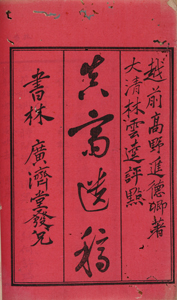 越前高野進德卿著
大清林雲逵評點
真斎遺稿
書林 廣濟堂發兌